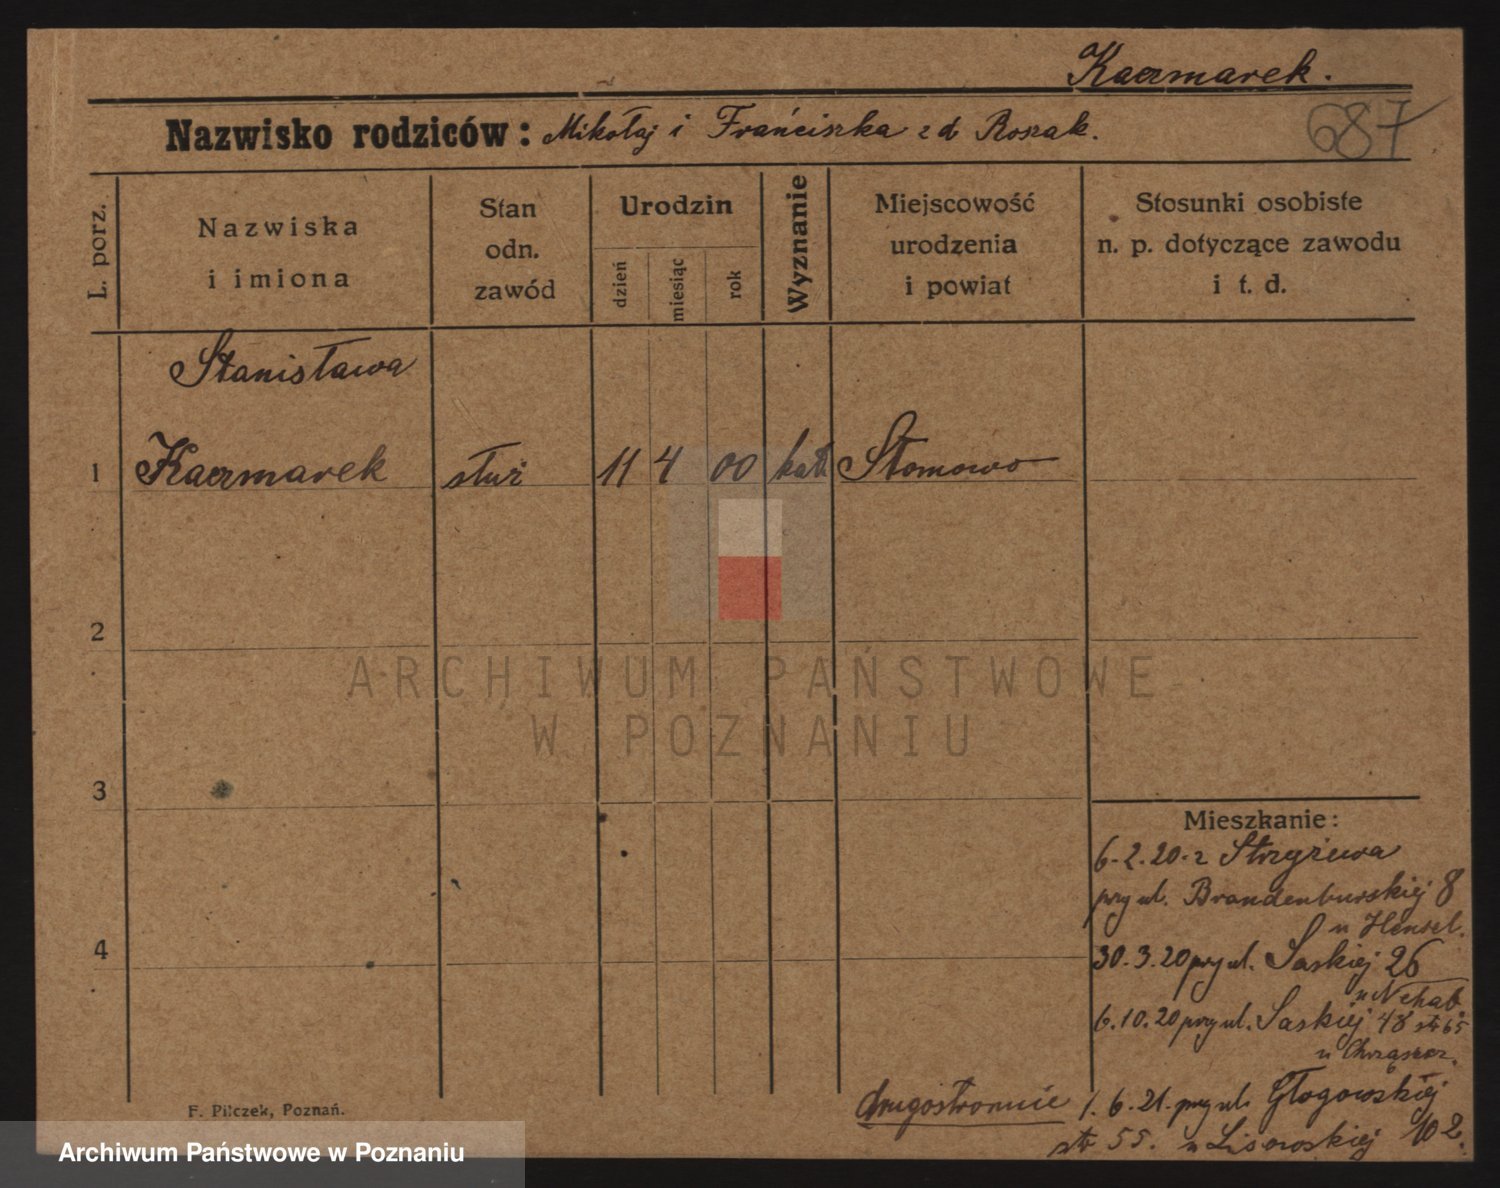 Kaczmarek.
687
Nazwisko rodziców: Mikołaj i Franciszka z d Roszak.
L. porz.
Nazwiska
i imiona
Stan
odn.
zawód
Urodzin
dzień
miesiąc
rok
Wyznanie
Miejscowość
urodzenia
i powiat
Stosunki osobiste
n. p. dotyczące zawodu
i t. d.
Stanisława
1 Kaczmarek służ 11 4 00 kat Słomowo
2
ARCHIWUM PAŃSTWOWE
W POZNANIU
3
Mieszkanie:
6.2.20. z Strzyżewa
przy ul. Brandenburskiej 8
u Hensel.
4
30.3.20 przy ul. Saskiej 26
u Nehab.
6.10.20 przy ul. Saskiej 48 str 65
u Chrząszcz.
drugostronnie 1.6.21. przy ul. Głogowskiej
str 55. u Lisowskiej 102.
F. Pilczek, Poznań.
Archiwum Państwowe w Poznaniu